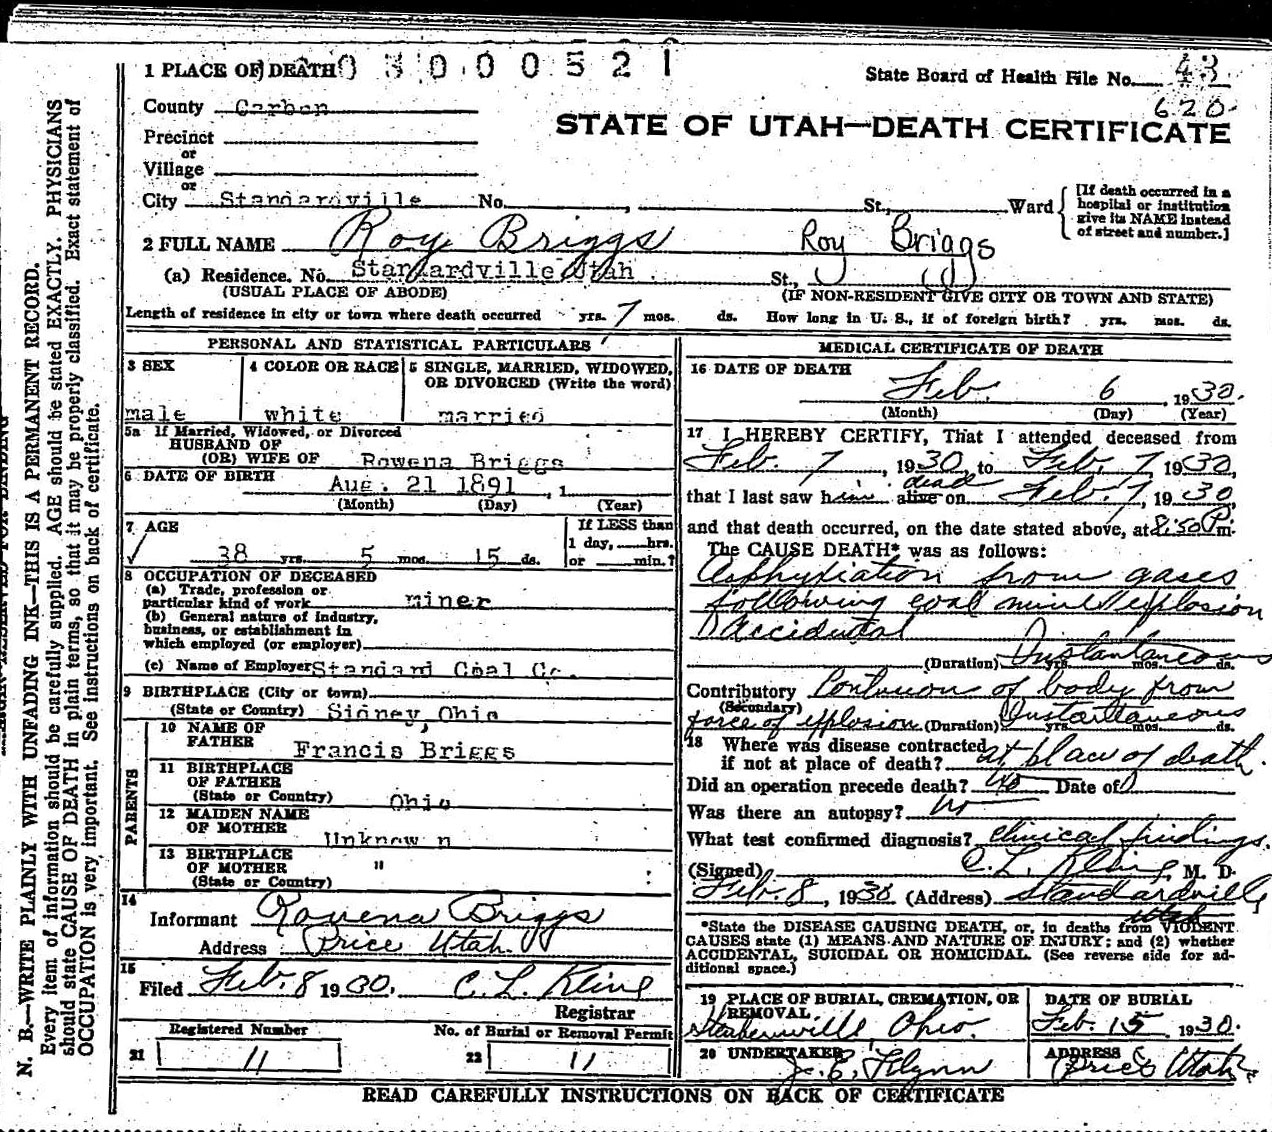 1 PLACE OF DEATH 0 3 0 0 0 5 2 1
State Board of Health File No. 43
620
County Carbon
STATE OF UTAH—DEATH CERTIFICATE
Precinct
or
Village
or
City Standardville No. , St., Ward
[If death occurred in a hospital or institution give its NAME instead of street and number.]
2 FULL NAME Roy Briggs Roy Briggs
(a) Residence. No. Standardville Utah St.,
(USUAL PLACE OF ABODE) (IF NON-RESIDENT GIVE CITY OR TOWN AND STATE)
Length of residence in city or town where death occurred yrs. 7 mos. ds. How long in U. S., if of foreign birth? yrs. mos. ds.
PERSONAL AND STATISTICAL PARTICULARS
3 SEX
male
4 COLOR OR RACE
white
5 SINGLE, MARRIED, WIDOWED, OR DIVORCED (Write the word)
married
5a If Married, Widowed, or Divorced
HUSBAND OF
(OR) WIFE OF Rowena Briggs
6 DATE OF BIRTH
Aug. 21 1891 , 1
(Month) (Day) (Year)
7 AGE
38 yrs. 5 mos. 15 ds.
If LESS than
1 day, hrs.
or min.?
8 OCCUPATION OF DECEASED
(a) Trade, profession or
particular kind of work miner
(b) General nature of industry,
business, or establishment in
which employed (or employer)
(c) Name of Employer Standard Coal Co.
9 BIRTHPLACE (City or town)
(State or Country) Sidney, Ohio
PARENTS
10 NAME OF
FATHER Francis Briggs
11 BIRTHPLACE
OF FATHER
(State or Country) Ohio
12 MAIDEN NAME
OF MOTHER Unknown
13 BIRTHPLACE
OF MOTHER "
(State or Country)
14
Informant Rowena Briggs
Address Price Utah.
15
Filed Feb. 8 1930. C. L. Kline
Registrar
Registered Number No. of Burial or Removal Permit
21 11 22 11
MEDICAL CERTIFICATE OF DEATH
16 DATE OF DEATH
Feb. 6 , 1930.
(Month) (Day) (Year)
17 I HEREBY CERTIFY, That I attended deceased from
Feb. 7 , 1930, to Feb. 7, 1930,
dead
that I last saw him alive on Feb. 7, 1930,
and that death occurred, on the date stated above, at 8:50 P m.
The CAUSE DEATH* was as follows:
Asphyxiation from gases
following coal mine explosion
Accidental
(Duration) Instantaneous yrs. mos. ds.
Contributory Contusion of body from
(Secondary)
force of explosion (Duration) Instantaneous yrs. mos. ds.
18 Where was disease contracted
if not at place of death? at place of death.
Did an operation precede death? No Date of 0
Was there an autopsy? No
What test confirmed diagnosis? clinical findings.
(Signed) C. L. Kline, M. D.
Feb. 8, 1930 (Address) Standardville,
Utah
*State the DISEASE CAUSING DEATH, or, in deaths from VIOLENT
CAUSES state (1) MEANS AND NATURE OF INJURY; and (2) whether
ACCIDENTAL, SUICIDAL OR HOMICIDAL. (See reverse side for ad-
ditional space.)
19 PLACE OF BURIAL, CREMATION, OR
REMOVAL
Steubenville, Ohio.
DATE OF BURIAL
Feb. 15 1930.
20 UNDERTAKER
J. E. Flynn
ADDRESS
Price Utah
READ CAREFULLY INSTRUCTIONS ON BACK OF CERTIFICATE
N. B.—WRITE PLAINLY WITH UNFADING INK—THIS IS A PERMANENT RECORD.
Every item of information should be carefully supplied. AGE should be stated EXACTLY. PHYSICIANS
should state CAUSE OF DEATH in plain terms, so that it may be properly classified. Exact statement of
OCCUPATION is very important. See instructions on back of certificate.